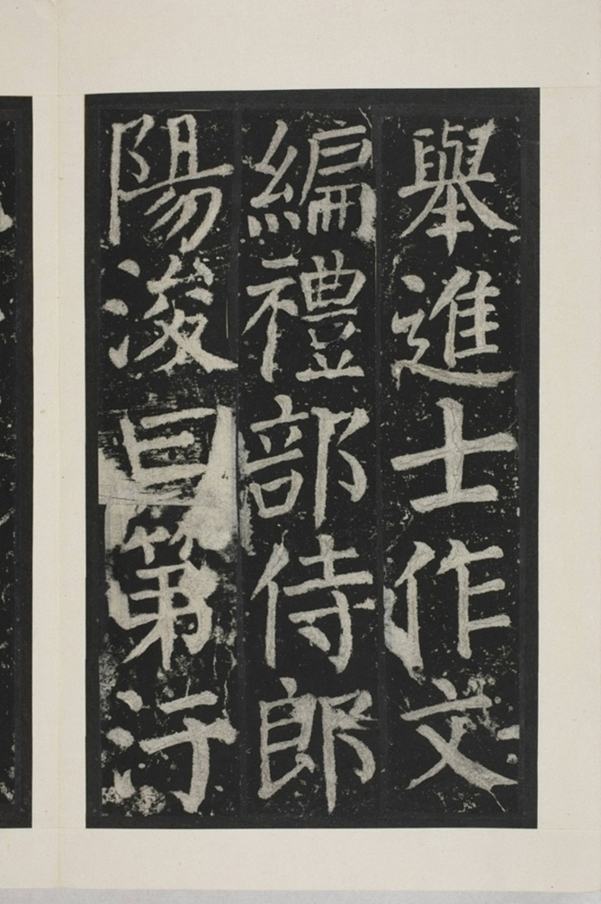 舉進士作文
編禮部侍郎
陽浚曰第汙